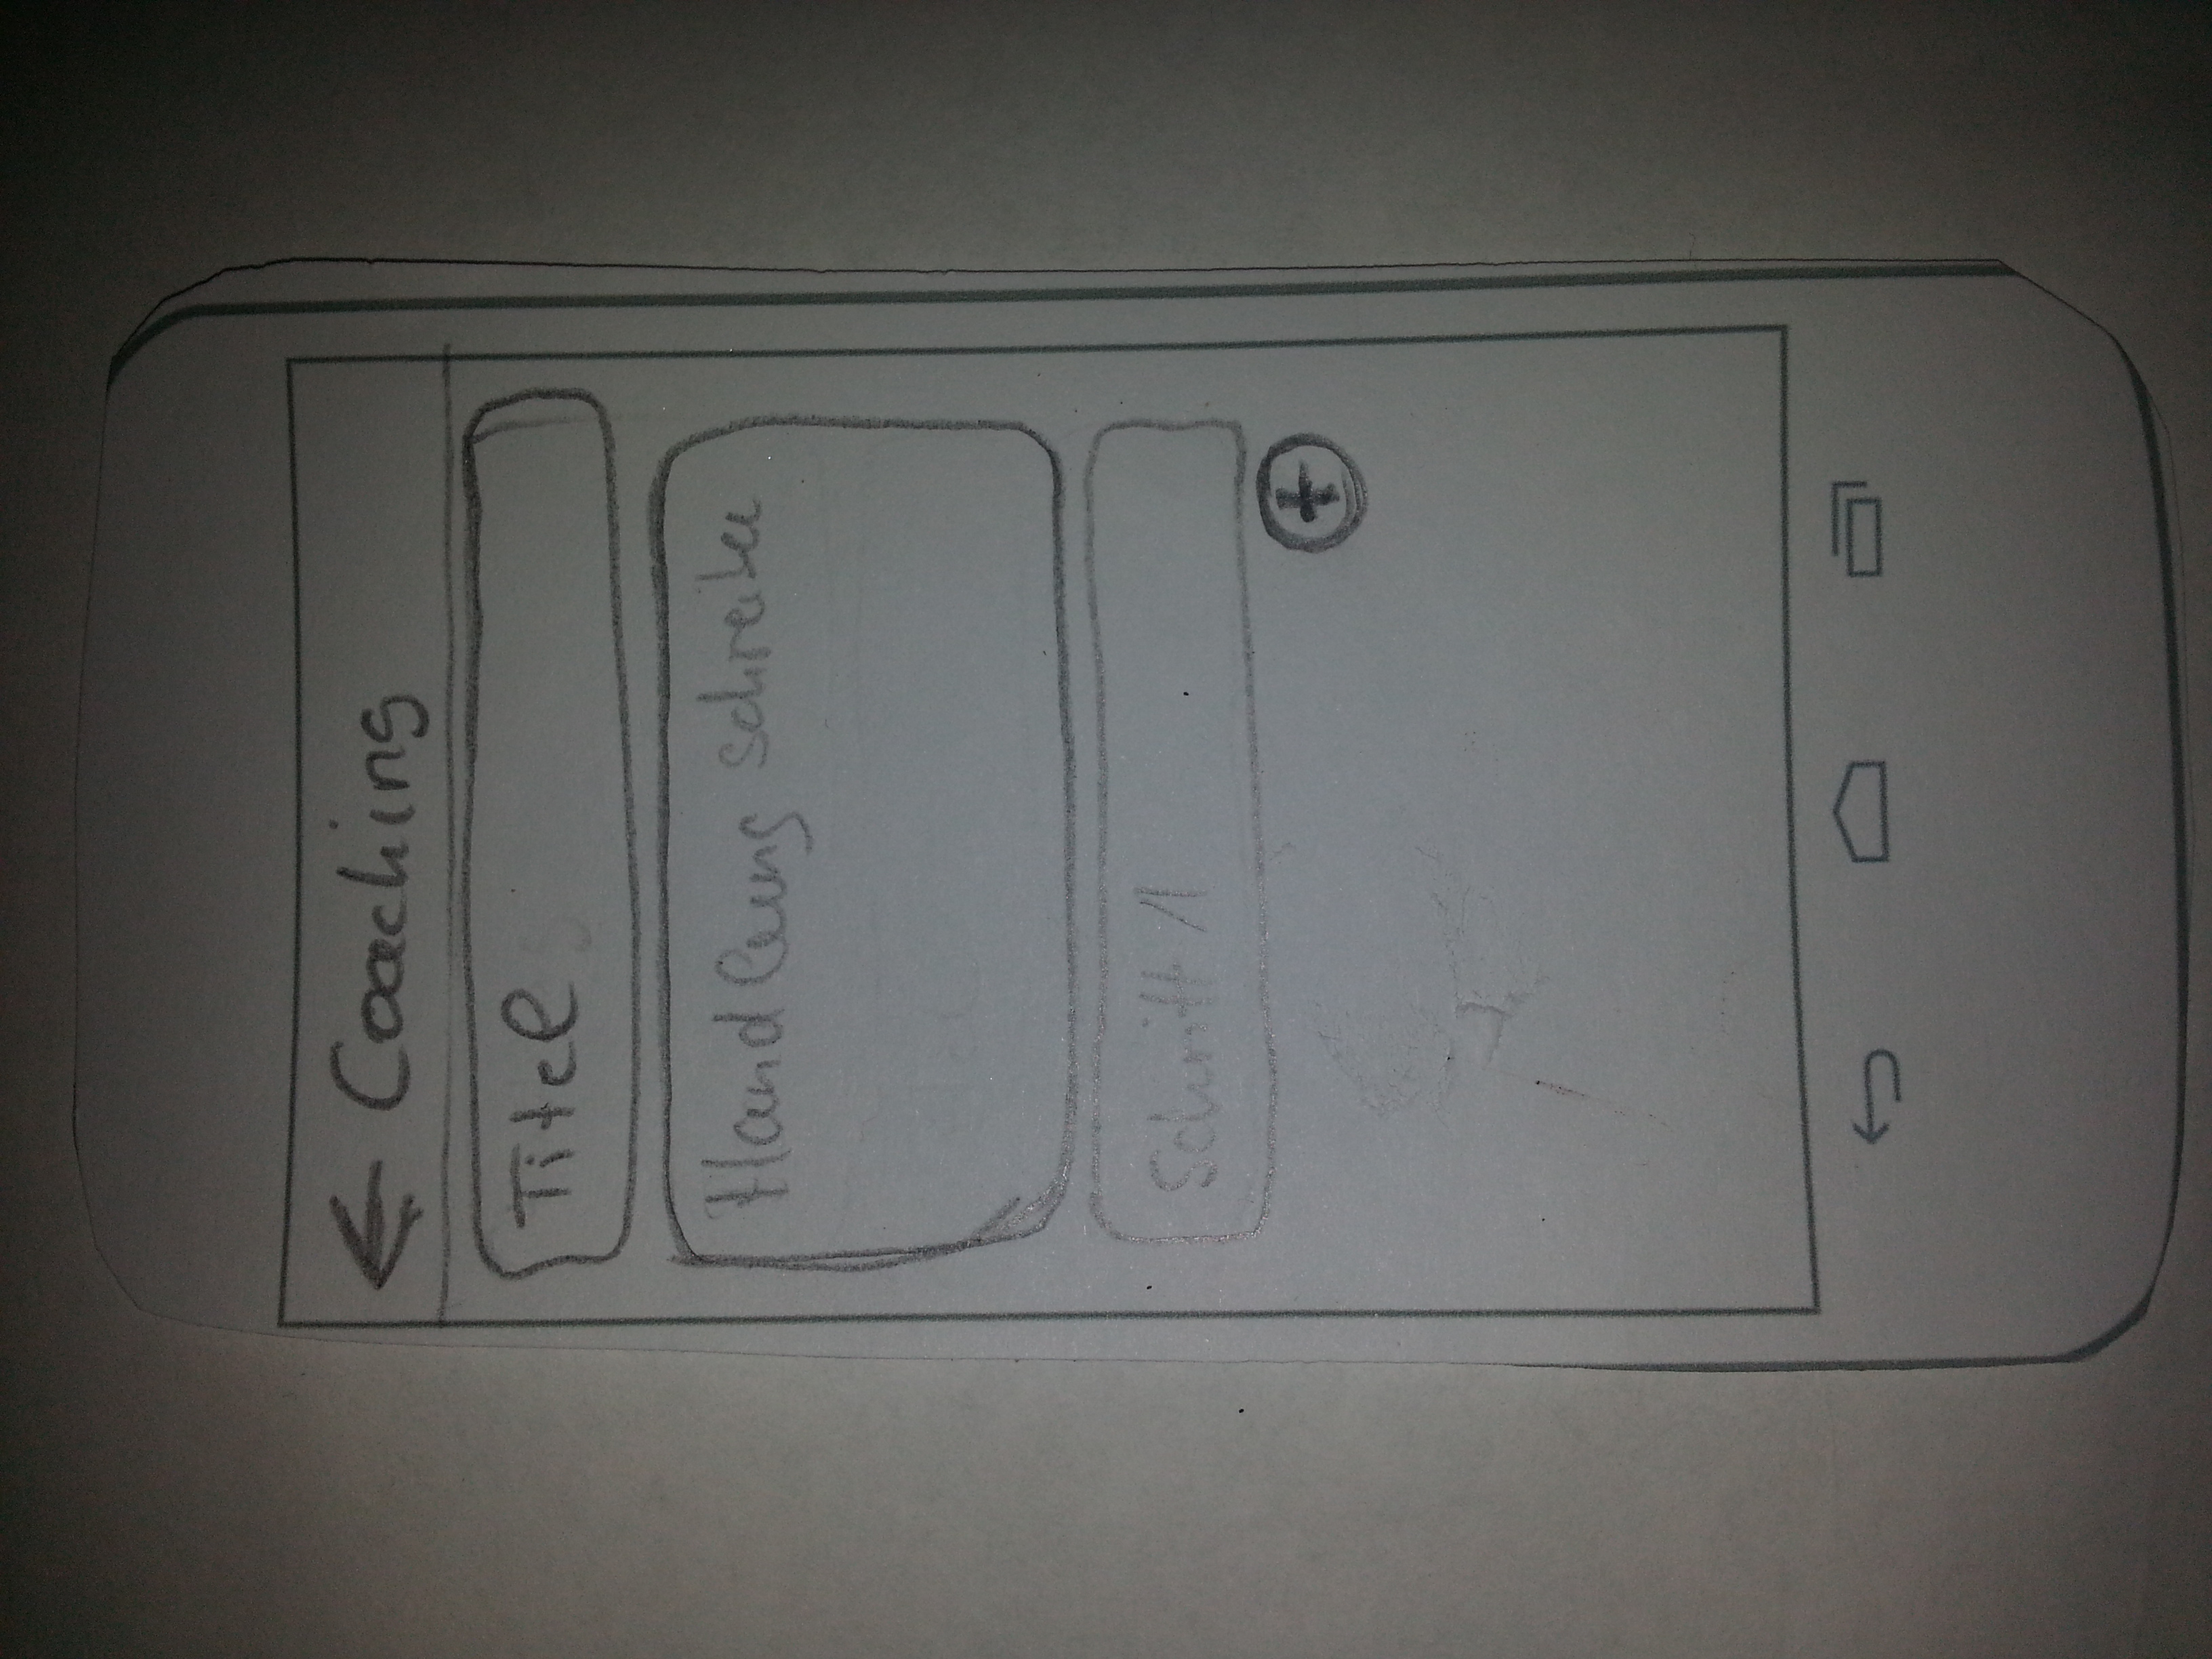 ← Coaching
Titel
Handlung schreiben
Schritt 1
+